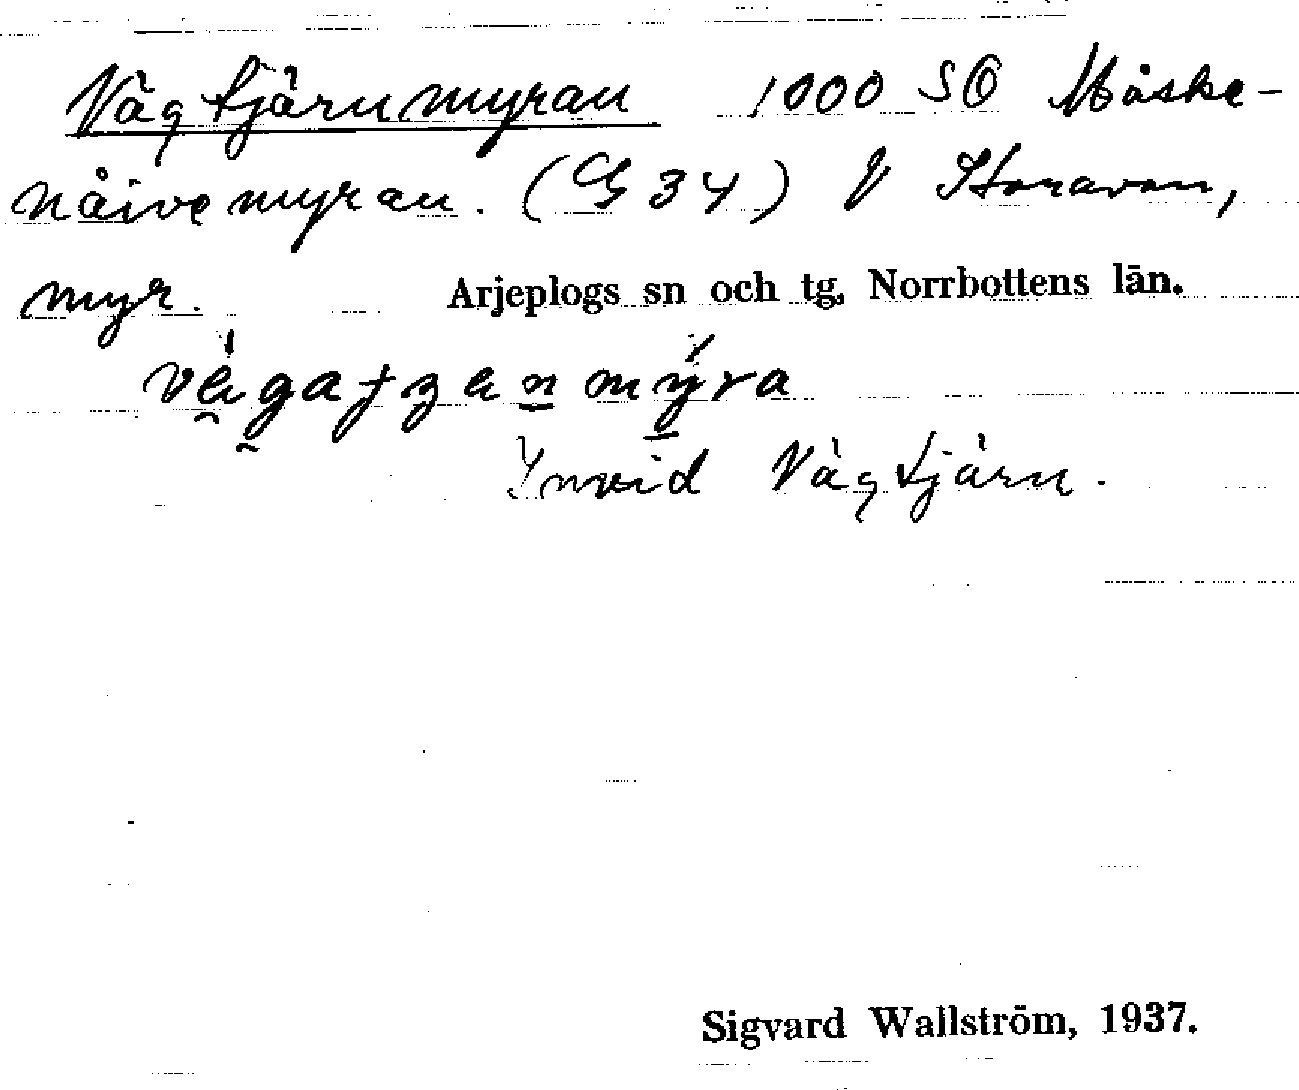 Vägtjärnmyran 1000 SÖ Måske-
nåivemyran. (G 34) V Storavan,
myr. Arjeplogs sn och tg, Norrbottens län.
Invid Vägtjärn.
Sigvard Wallström, 1937.